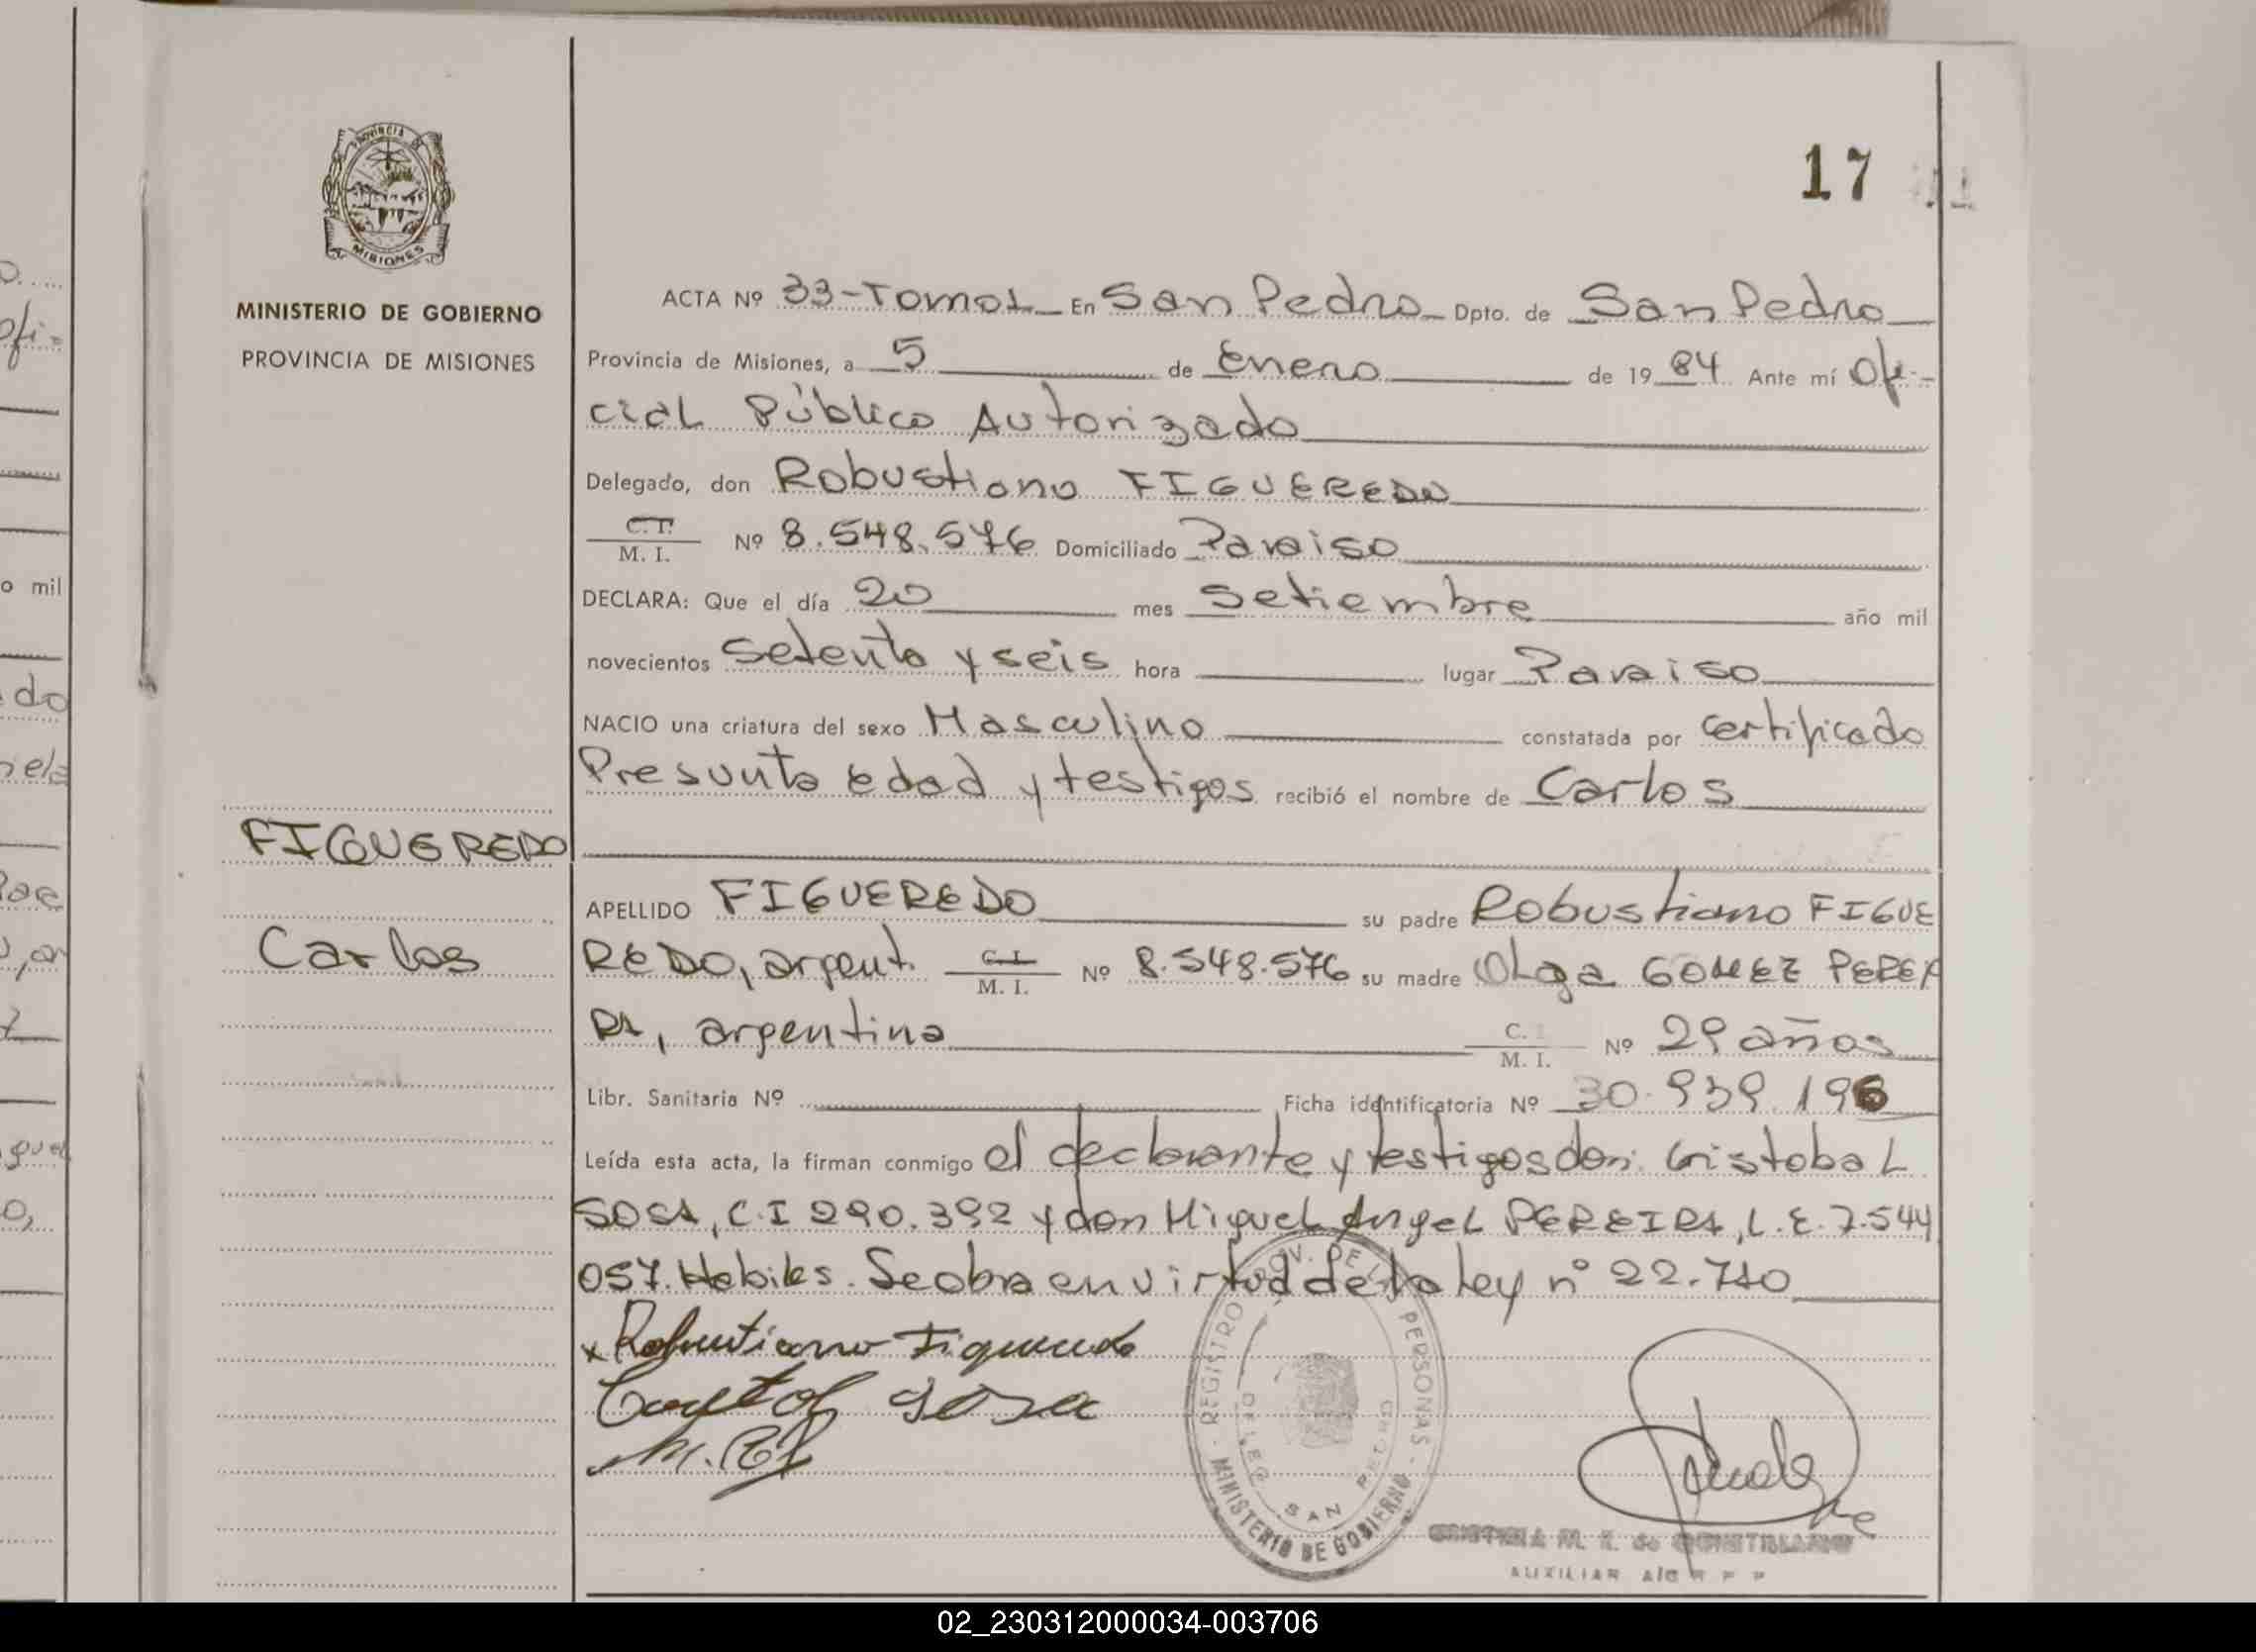 17
PROVINCIA DE
MISIONES
MINISTERIO DE GOBIERNO
PROVINCIA DE MISIONES
FIGUEREDO
Carlos
ACTA Nº 33-Tomo1 En San Pedro Dpto. de San Pedro
Provincia de Misiones, a 5 de Enero de 1984 Ante mí Ofi-
cial Público Autorizado
Delegado, don Robustiano FIGUEREDO
C.I.
M. I. Nº 8.548.576 Domiciliado Paraiso
DECLARA: Que el día 20 mes Setiembre año mil
novecientos Setenta y seis hora lugar Paraiso
NACIO una criatura del sexo Masculino constatada por Certificado
Presunta edad y testigos recibió el nombre de Carlos
APELLIDO FIGUEREDO su padre Robustiano FIGUE
REDO, argent. C.I. M. I. Nº 8.548.576 su madre Olga GOMEZ PEREI
RA, argentina C. I. M. I. Nº 29 años
Libr. Sanitaria Nº Ficha identificatoria Nº 30.939.196
Leída esta acta, la firman conmigo el declarante y testigos don: Cristobal
SOSA, C.I 290.392 y don Miguel Angel PEREIRA, L.E. 7.544
057. Habiles. Se obra en virtud de la ley nº 22.710
x Robustiano Figueredo
Sosa
REGISTRO PROV. DE LAS PERSONAS - MINISTERIO DE GOBIERNO -
DELEG. SAN PEDRO
AUXILIAR
o mil
do
02_230312000034-003706